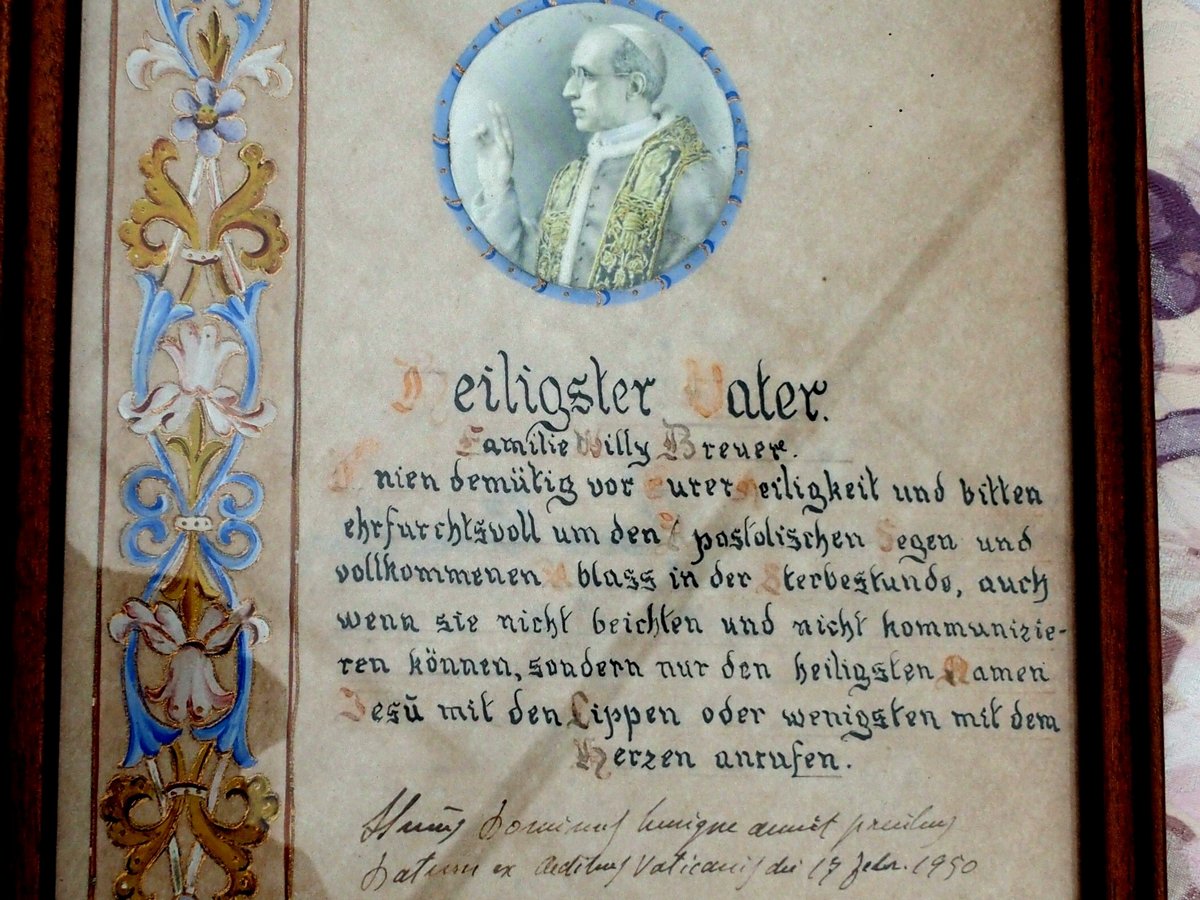 Heiligster Vater.
Familie Willy Breuer.
Knien demütig vor Eurer Heiligkeit und bitten
ehrfurchtsvoll um den Apostolischen Segen und
vollkommenen Ablass in der Sterbestunde, auch
wenn sie nicht beichten und nicht kommunizie-
ren können, sondern nur den heiligsten Namen
Jesū mit den Lippen oder wenigsten mit dem
Herzen anrufen.
Dominus benigne annuit precibus
Datum ex Aedibus Vaticanis die 17 Febr. 1950